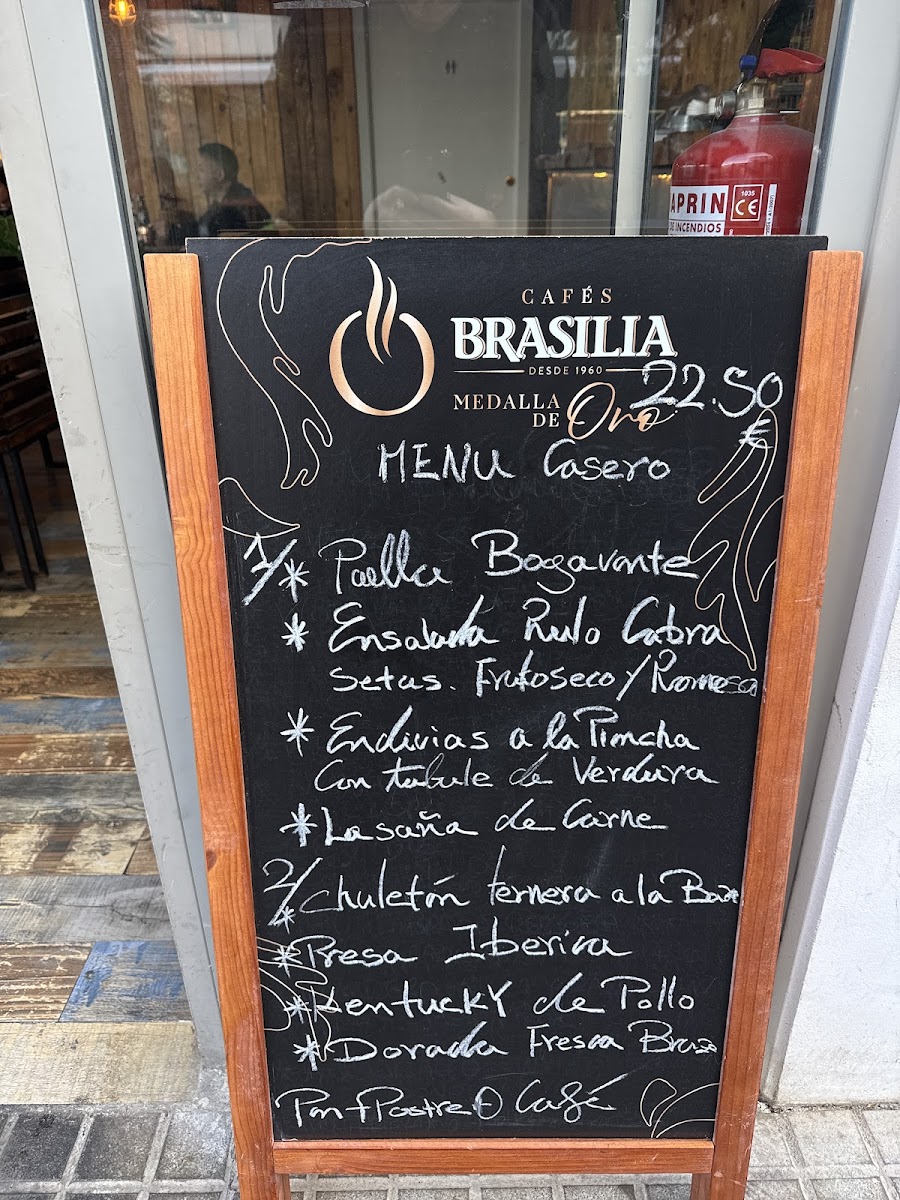 APRIN
INCENDIOS
1035
CE
CAFÉS
BRASILIA
DESDE 1960
MEDALLA
DE Oro
22.50
€
MENU Casero
1/* Paella Bogavante
* Ensalada Rulo Cabra
Setas. Frutoseco/Romesa
* Endivias a la Pimcha
Con tabule de Verdura
* Lasaña de Carne
2/* Chuletón ternera a la
* Presa Iberica
* Kentucky de Pollo
* Dorada Fresca Brasa
Pan + Postre O Café